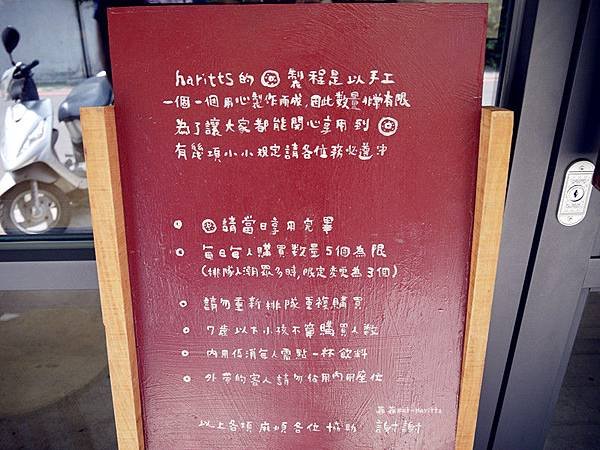 haritts的 製程是以手工
一個一個用心製作而成,因此數量非常有限
為了讓大家都能開心享用到
有幾項小小規定請各位務必遵守
請當日享用完畢
每日每人購買數量5個為限
(排隊人潮眾多時,限定表更為3個)
請勿重新排隊重複購買
7歲以下小孩不算購買人數
內用低消每人需點一杯飲料
外帶的客人請勿佔用內用座位
以上各項麻煩各位協助 謝謝